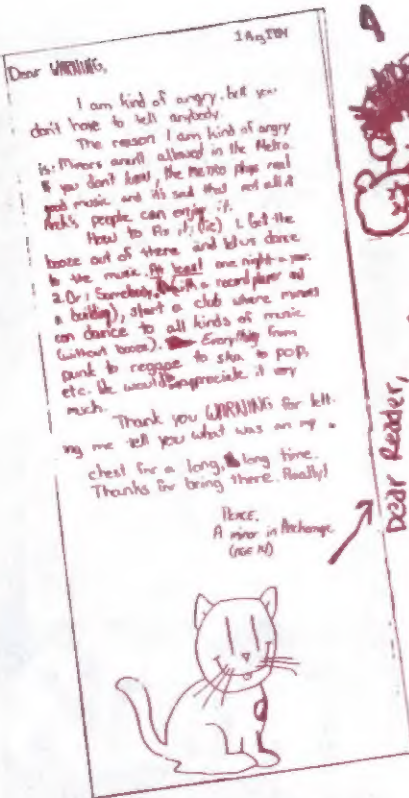 1 Aug 1984
Dear WARNING,
I am kind of angry, but you
don't have to tell anybody.
The reason I am kind of angry
is: Minors aren't allowed in the Metro.
If you don't know, the Metro plays real
good music and it's sad that not all of
Anch's people can enjoy it.
How to fix it; (fix) 1. Get the
booze out of there and let us dance
to the music. At least one night a year.
2. Or; Somebody, (with a record player and
a building), start a club where minors
can dance to all kinds of music
(without booze). Everything from
punk to reggae to ska to pop,
etc. We would appreciate it very
much.
Thank you WARNING for lett-
ing me tell you what was on my
chest for a long, long time.
Thanks for being there. Really!
PEACE,
A minor in Anchorage
(AGE 14)
Dear Reader,